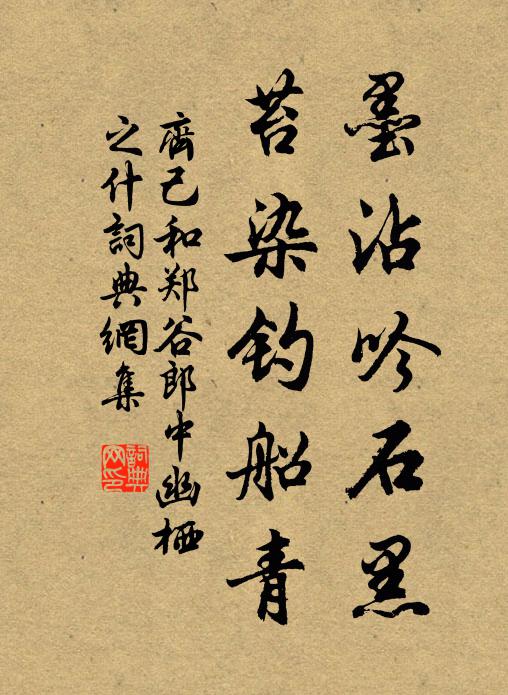 墨沾吟石黑
苔染钓船青
齊己和郑谷郎中幽栖
之什詞典網集
詞典
网印